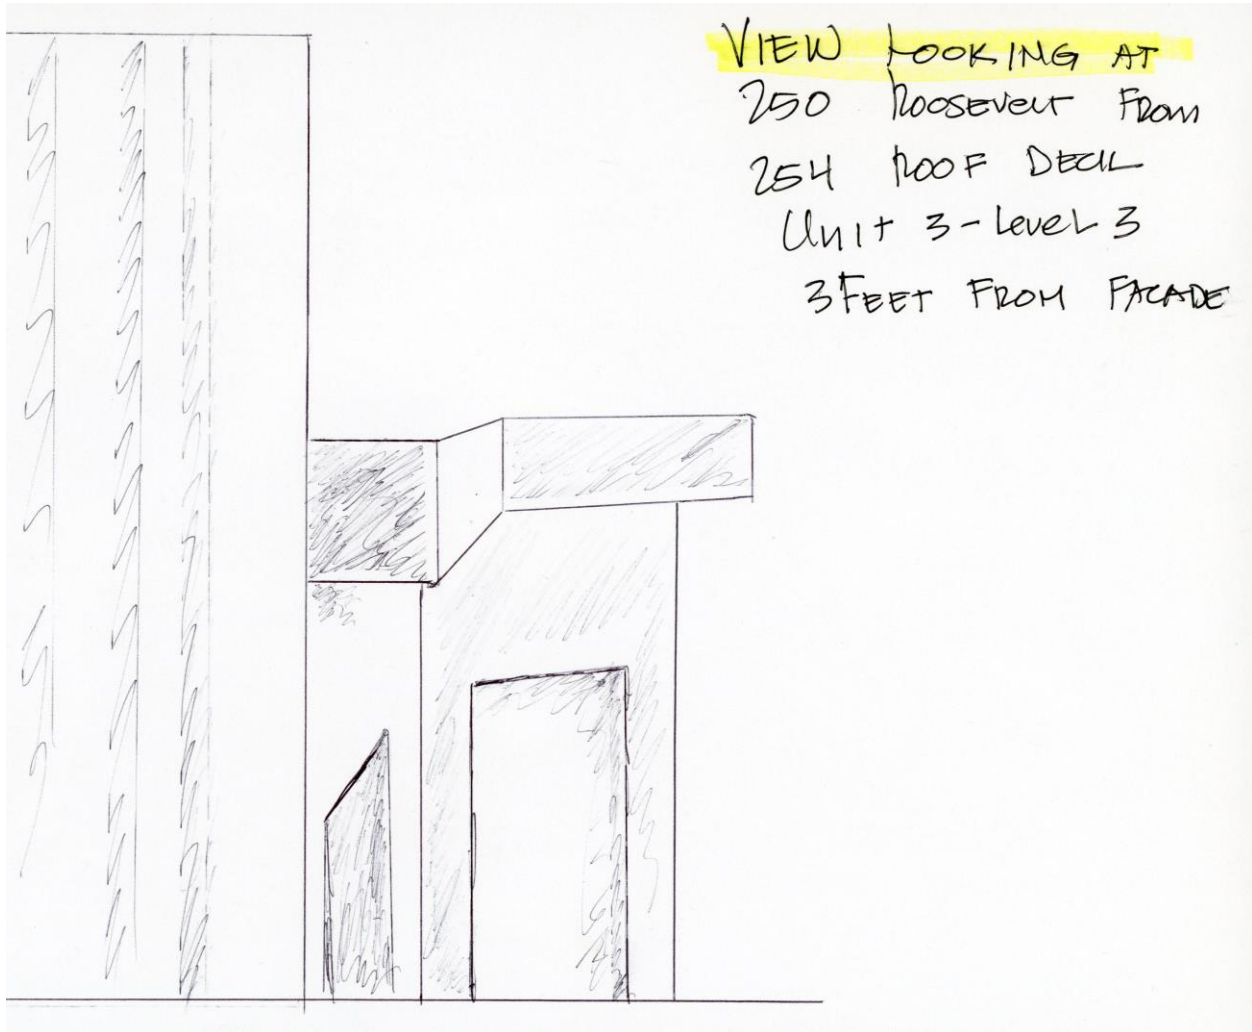 VIEW LOOKING AT
250 ROOSEVELT FROM
254 ROOF DECK
UNIT 3 - LEVEL 3
3 FEET FROM FACADE